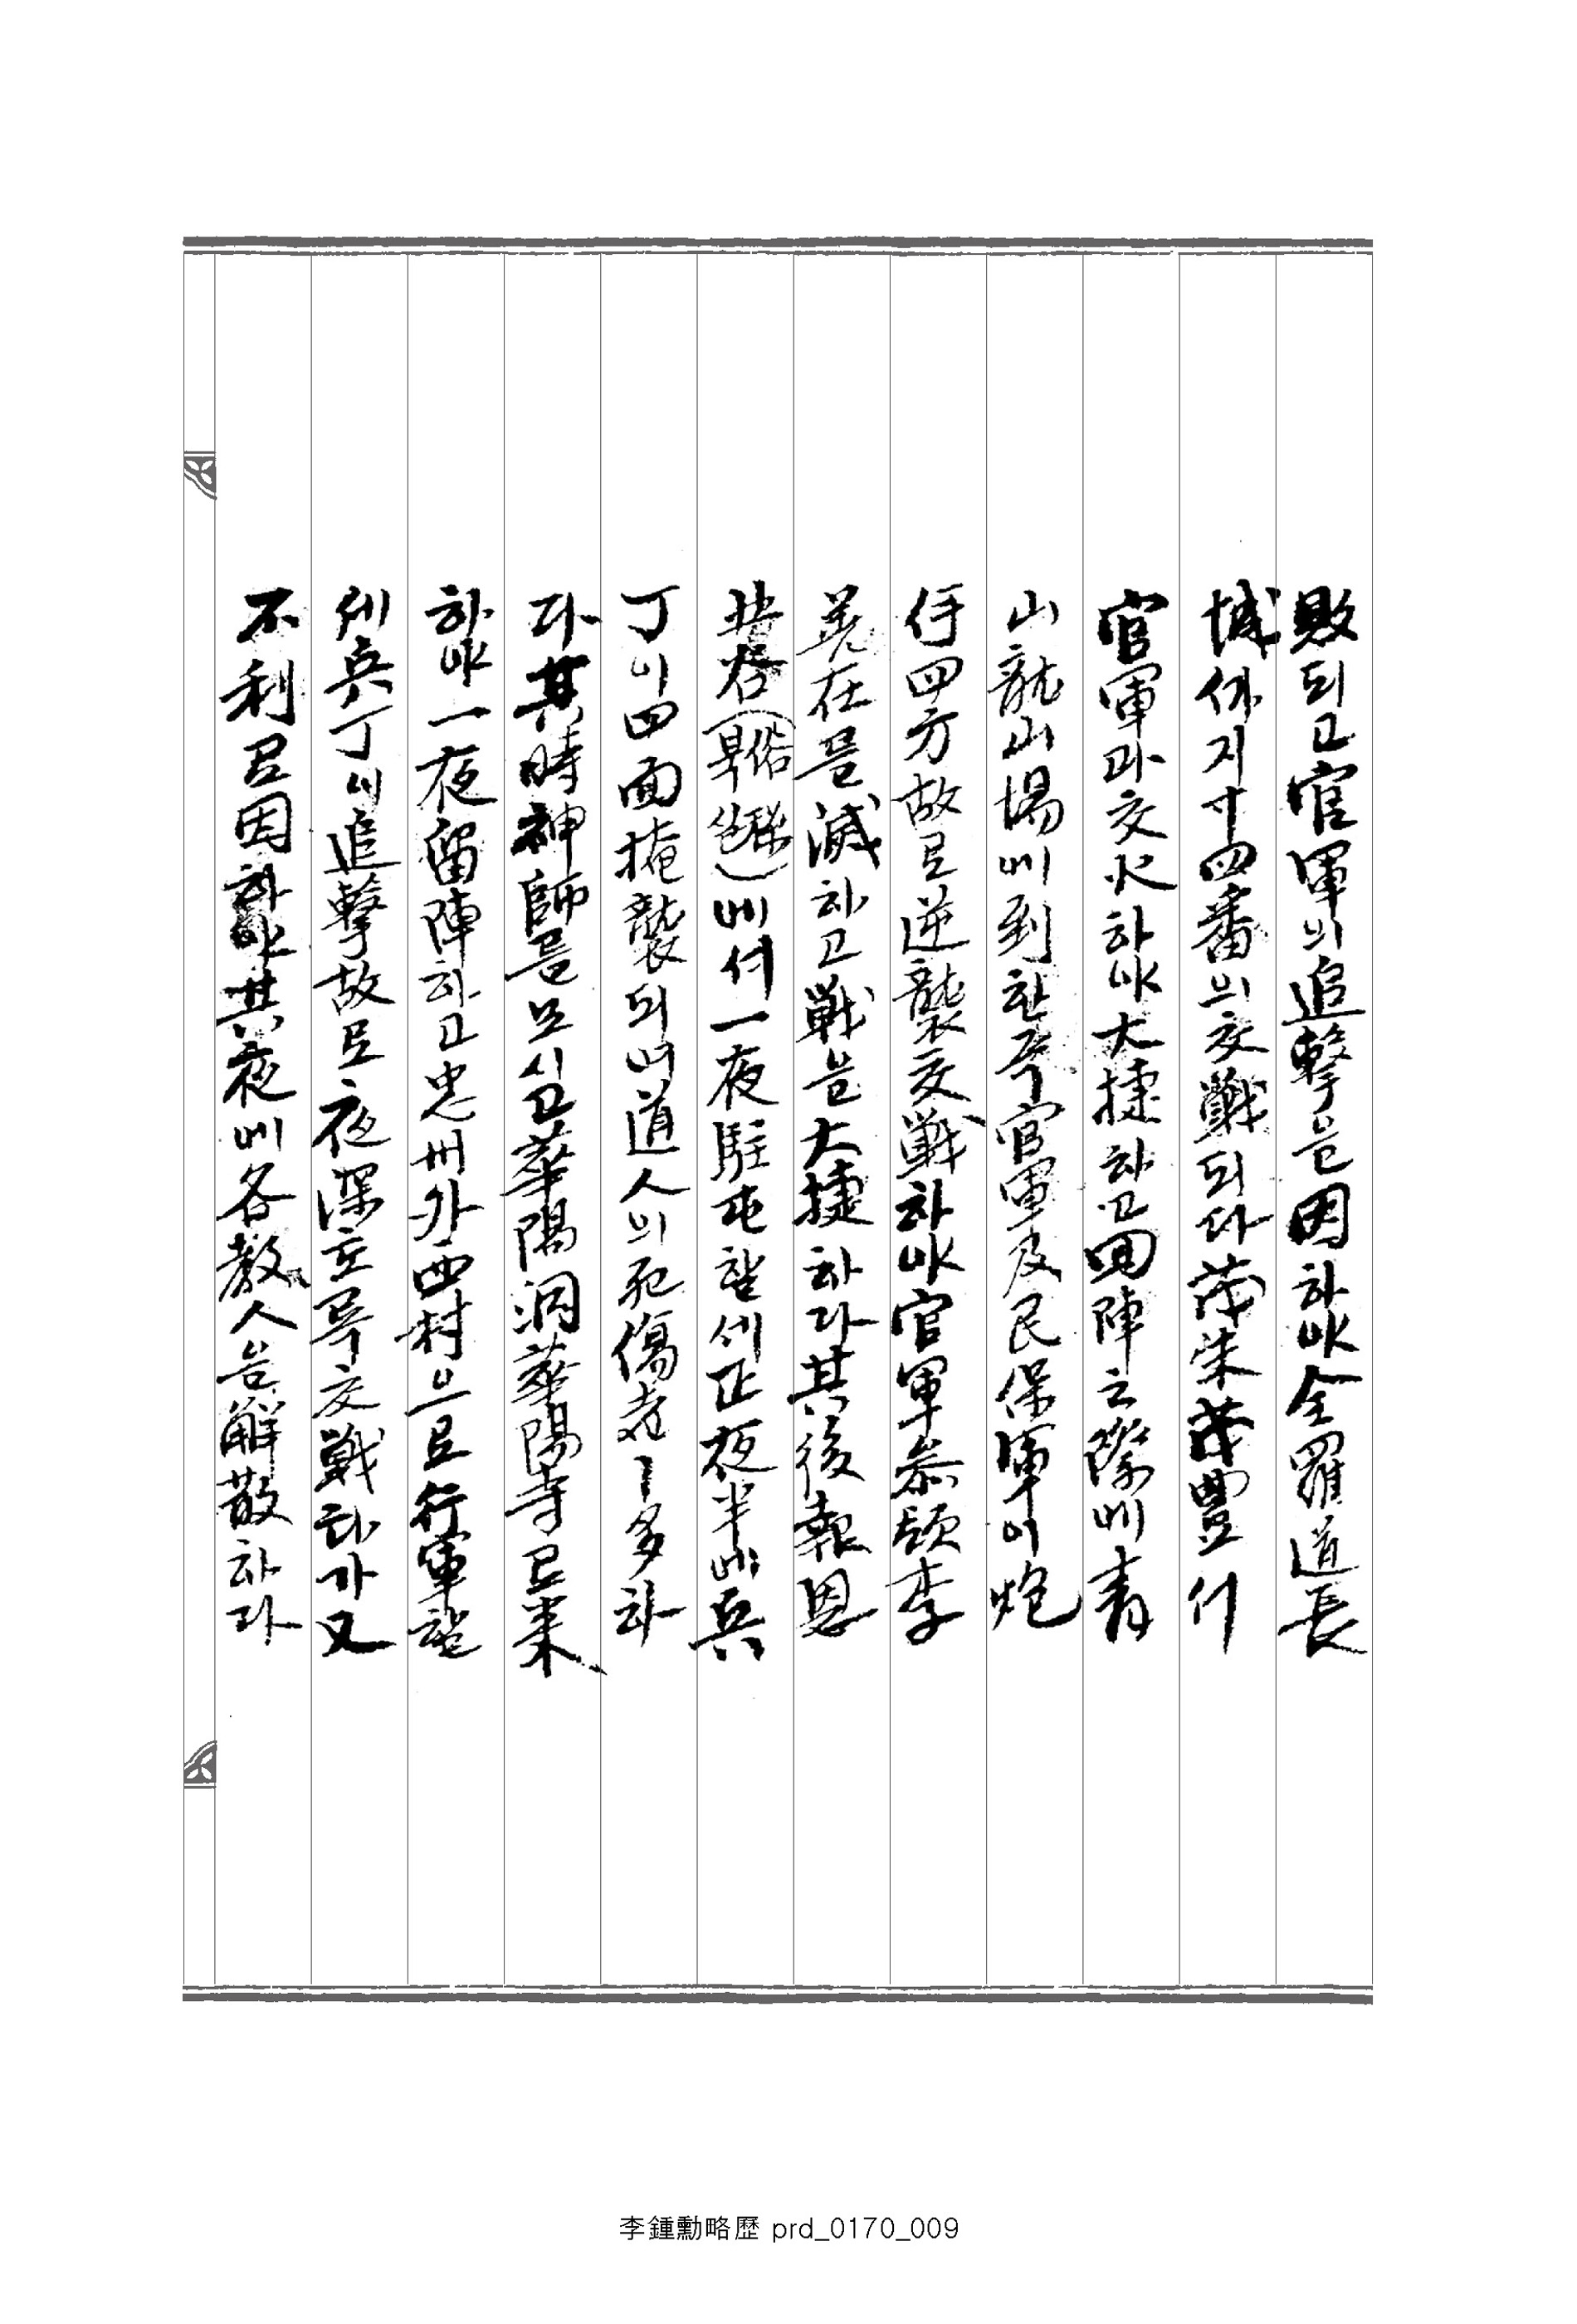 敗되고官軍의追擊을因하야全羅道長
城까지十四番의交戰되다茂朱茂豊서
官軍과交火하야大捷하고回陣之際에靑
山龍山場에到한즉官軍及民保軍이砲
四方故로逆襲交戰하야官軍參領李
在를滅하고戰은大捷하다其後報恩
(俗)에서一夜駐屯할세正夜半에兵
丁이四面掩襲되여道人의死傷者ㅣ多하
다其時神師를모시고華陽洞華陽寺로來
하야一夜留陣하고忠州外西村으로行軍할
세兵丁이追擊故로夜深토록交戰하다가又
不利로因하야其夜에各敎人은解散하다
李鍾勳略歷 prd_0170_009